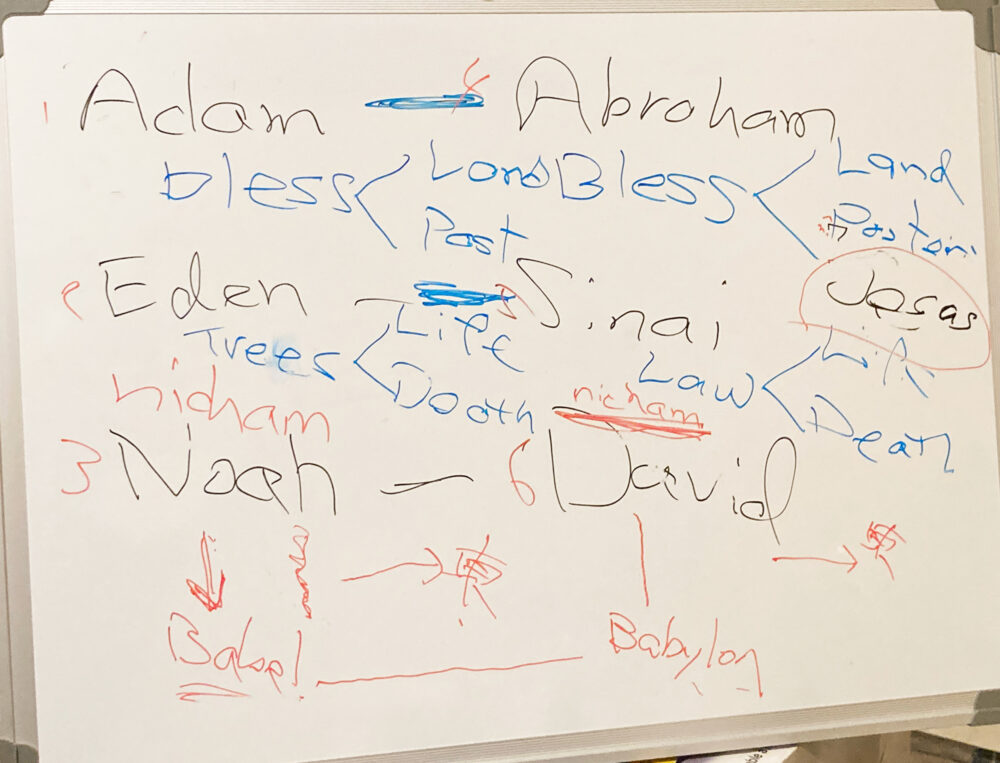 1 Adam 4 Abraham
bless Lond Bless Land
Post
2 Eden 5 Sinai Jesas
Trees Life Law Life
Dooth Death
nicham nicham
3 Noah 6 David
東 東
Babel Babylon